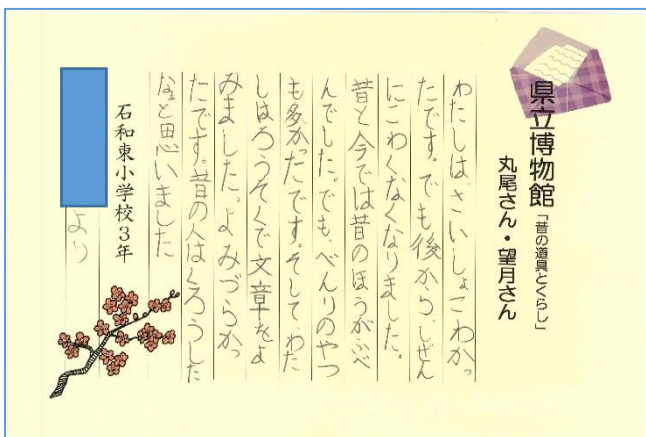 県立博物館「昔の道具とくらし」
丸尾さん・望月さん
わたしは、さいしょこわかっ
たです。でも後から、しぜん
にこわくなくなりました。
昔と今では昔のほうがふべ
んでした。でも、べんりのやつ
も多かったです。そして、わた
しはろうそくで文章をよ
みました。よみづらかっ
たです。昔の人はくろうした
なと思いました
石和東小学校3年
より